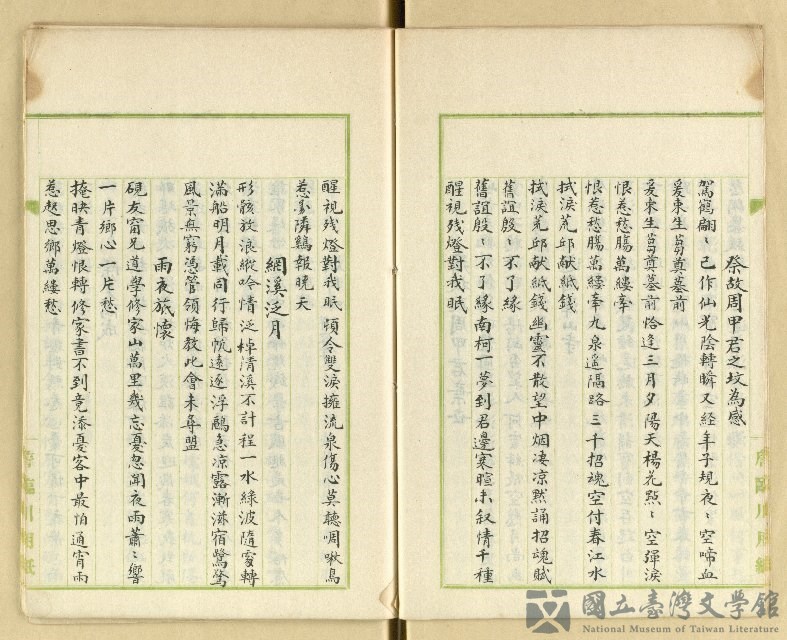 祭故周甲君之坟為感
駕鶴翩〻已作仙光陰轉瞬又經年子規夜〻空啼血
爰束生芻奠墓前
爰束生芻奠墓前恪逢三月夕陽天楊花點〻空彈淚
恨惹愁腸萬縷牽
恨惹愁腸萬縷牽九泉遙隔路三千招魂空付春江水
拭淚荒邱献紙錢
拭淚荒邱献紙錢幽靈不散望中烟凄凉默誦招魂賦
舊誼殷〻不了緣
舊誼殷〻不了緣南柯一夢到君邊寒暄未叙情千種
醒視残燈對我眠
醒視残燈對我眠頓令雙淚擁流泉傷心莫聽啁啾鳥
惹予隣鷄報曉天
網溪泛月
形骸放浪縱吟情泛棹清溪不計程一水綠波隨處轉
滿船明月載同行歸帆遠逐浮鷗急凉露漸淋宿鷺驚
風景無窮憑管領悔教此會未尋盟
雨夜旅懷
硯友窗兄道學修家山萬里幾忘憂忽聞夜雨蕭〻響
一片鄉心一片愁
掩映青燈恨轉修家書不到竟添憂客中最怕通宵雨
惹起思鄉萬縷愁
國立臺灣文學館
National Museum of Taiwan Literature